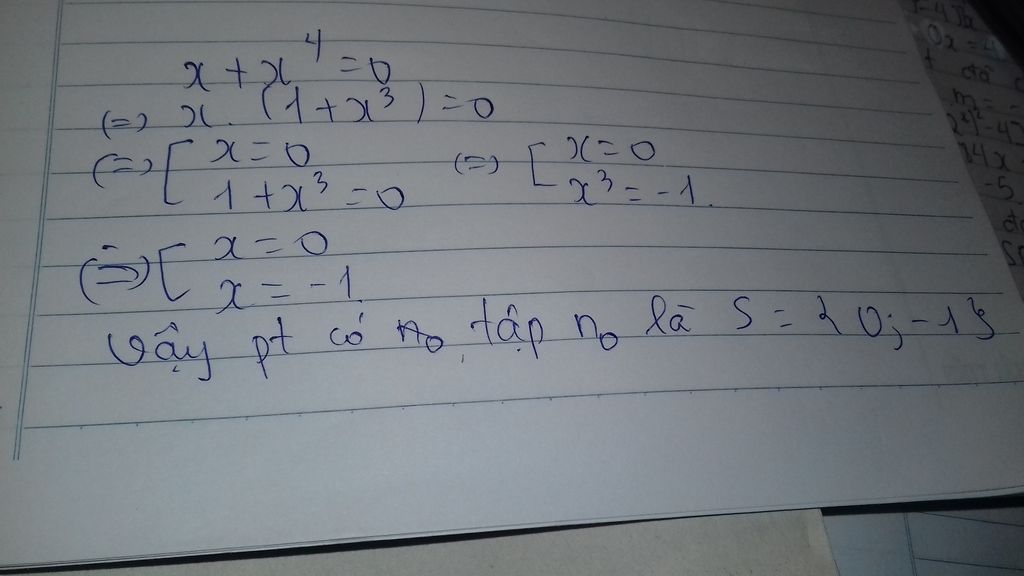 x + x⁴ = 0
(=) x. (1 + x³) = 0
(=) [ x = 0 (=) [ x = 0
1 + x³ = 0 x³ = -1.
(=) [ x = 0
x = -1
Vậy pt có n₀ tập n₀ là S = { 0; -1 }
m =
-5